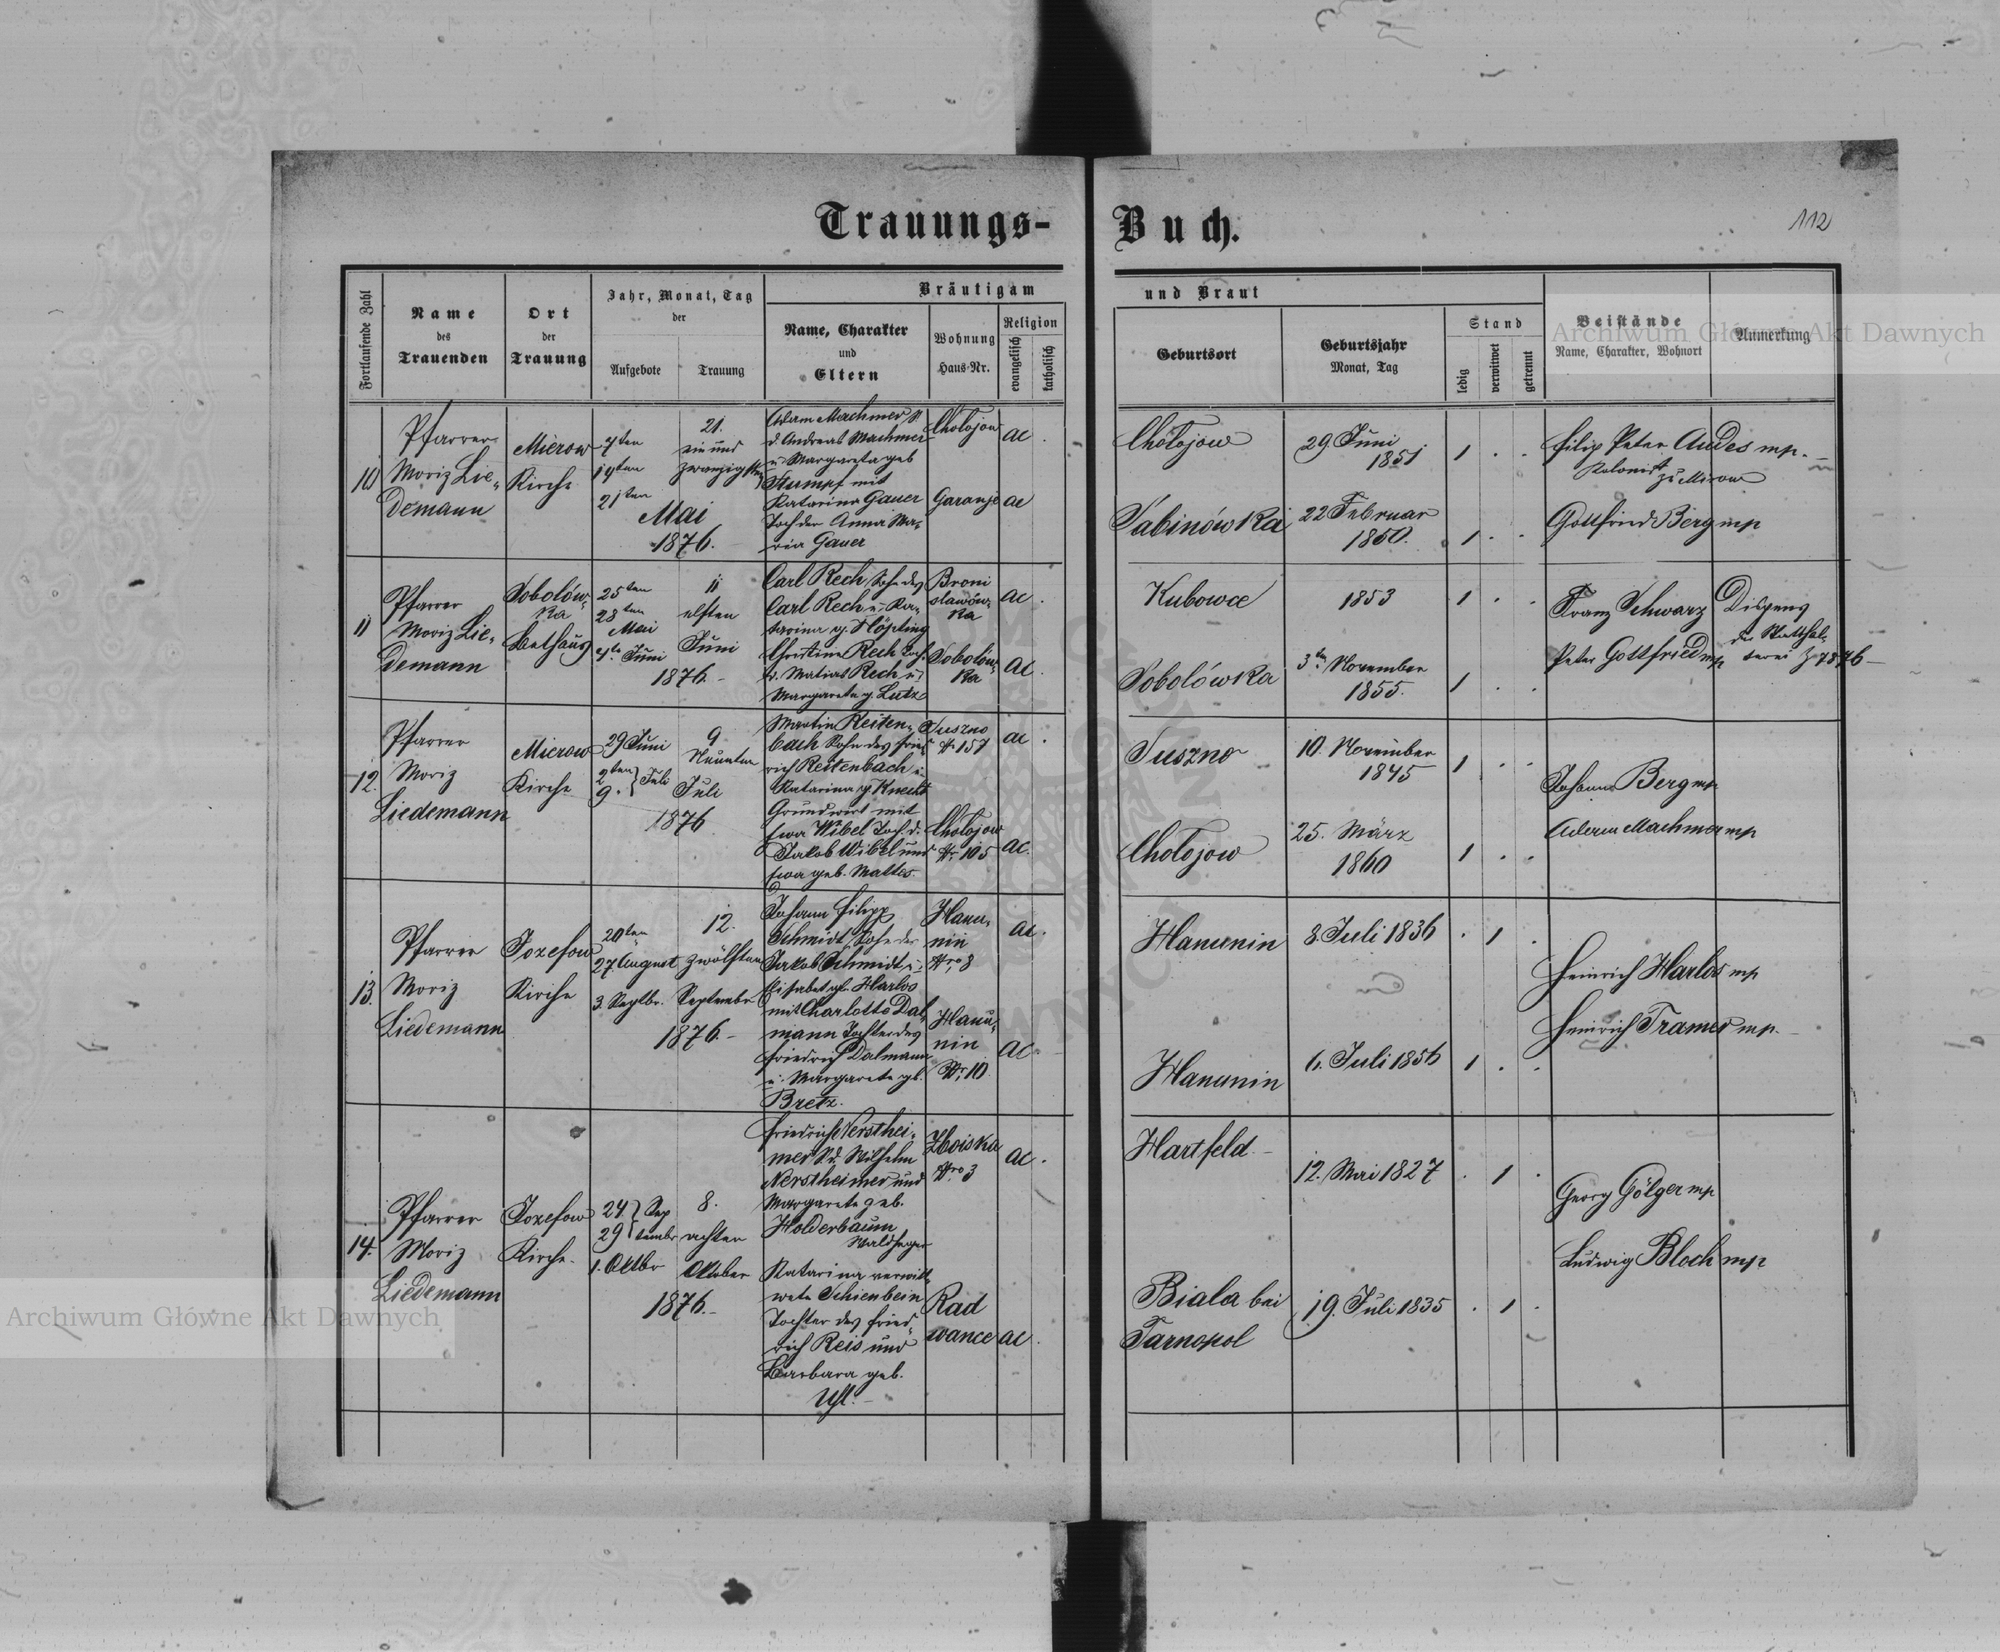 Trauungs-Buch.
112
Fortlaufende Zahl
Name
des
Trauenden
Ort
der
Trauung
Jahr, Monat, Tag
der
Aufgebote
Trauung
Bräutigam
Name, Charakter
und
Eltern
Wohnung
Haus-Nr.
Religion
evangelisch
katholisch
und Braut
Geburtsort
Geburtsjahr
Monat, Tag
Stand
ledig
verwitwet
getrennt
Beistände
Name, Charakter, Wohnort
Anmerkung
Archiwum Główne Akt Dawnych
10
Pfarrer
Moriz Lie-
demann
Mierow
Kirche
7ten
14ten
21ten
Mai
1876.
21.
ein und
zwanzigsten
Adam Machmer, S.
d. Andreas Machmer
u. Margareta geb
Stumpf mit
Katarina Gauer
Tochter Anna Ma-
ria Gauer
Cholojow
Garanje
ac
ac
Cholojow
29 Juni
1851
1
Sabinówka
22 Februar
1850.
1
Filip Peter Andes mp.
Kolonist zu Mirow
Gottfried Berg mp
11
Pfarrer
Moriz Lie-
demann
Sobolów-
ka
Bethaus
25ten
28ten
Mai
4te Juni
1876.-
11
elften
Juni
Carl Rech, Sohn des
Carl Rech u. Ka-
tarina g. Höpting
Christina Rech Toch.
d. Matias Rech u.
Margareta g. Lutz
Broni
slawów-
ka
Sobolów-
ka
ac
ac
Kubowce
1853
1
Sobolówka
3te November
1855.
1
Franz Schwarz
Peter Gottfried mp
Dispens
der Statthal-
terei Z 7876
12.
Pfarrer
Moriz
Liedemann
Mierow
Kirche
29 Juni
2ten
9. Juli
1876
9
Neunten
Juli
Martin Reiten-
bach Sohn des Fried
rich Reitenbach u.
Katarina g. Knecht
Grundwirt mit
Ewa Wibel Toch. d.
Jakob Wibel und
Ewa geb. Maltes.
Tuszno
Nr. 157
Cholojow
Nr. 105
ac
ac.
Tuszno
10. November
1845
1
Cholojow
25. März
1860
1
Johann Berg mp
Adam Machmer mp
13.
Pfarrer
Moriz
Liedemann
Jozefow
Kirche
20ten
27. August
3. Septbr.
1876.-
12.
zwölften
September
Johann Filipp
Schmidt, Sohn des
Jakob Schmidt u.
Elisabet gb. Harlos
mit Charlotta Dal-
mann Tochter des
Friedrich Dalmann
u. Margareta gb.
Bretz.
Hanu-
nin
Nro 8
Hanu-
nin
Nr. 10
ac.
ac.
Hanunin
8. Juli 1836
1
Hanunin
6. Juli 1856
1
Heinrich Harlos mp
Heinrich Tramer mp.
14.
Pfarrer
Moriz
Liedemann
Jozefow
Kirche.
24. Sep
29 tember
1. Oktbr
1876.-
8.
achten
Oktober
Friedrich Nersthei-
mer S. d. Wilhelm
Nerstheimer und
Margareta geb.
Holderbaum
Waldheger
Katarina verwitt-
wete Schienbein
Tochter des Fried-
rich Reis und
Barbara geb.
Uhl.
Zboiska
Nro 3
Rad
wance
ac.
ac.
Hartfeld.
12. Mai 1827
1
Biala bei
Tarnopol
19. Juli 1835
1
Georg Gölger mp
Ludwig Bloch mp
Archiwum Główne Akt Dawnych